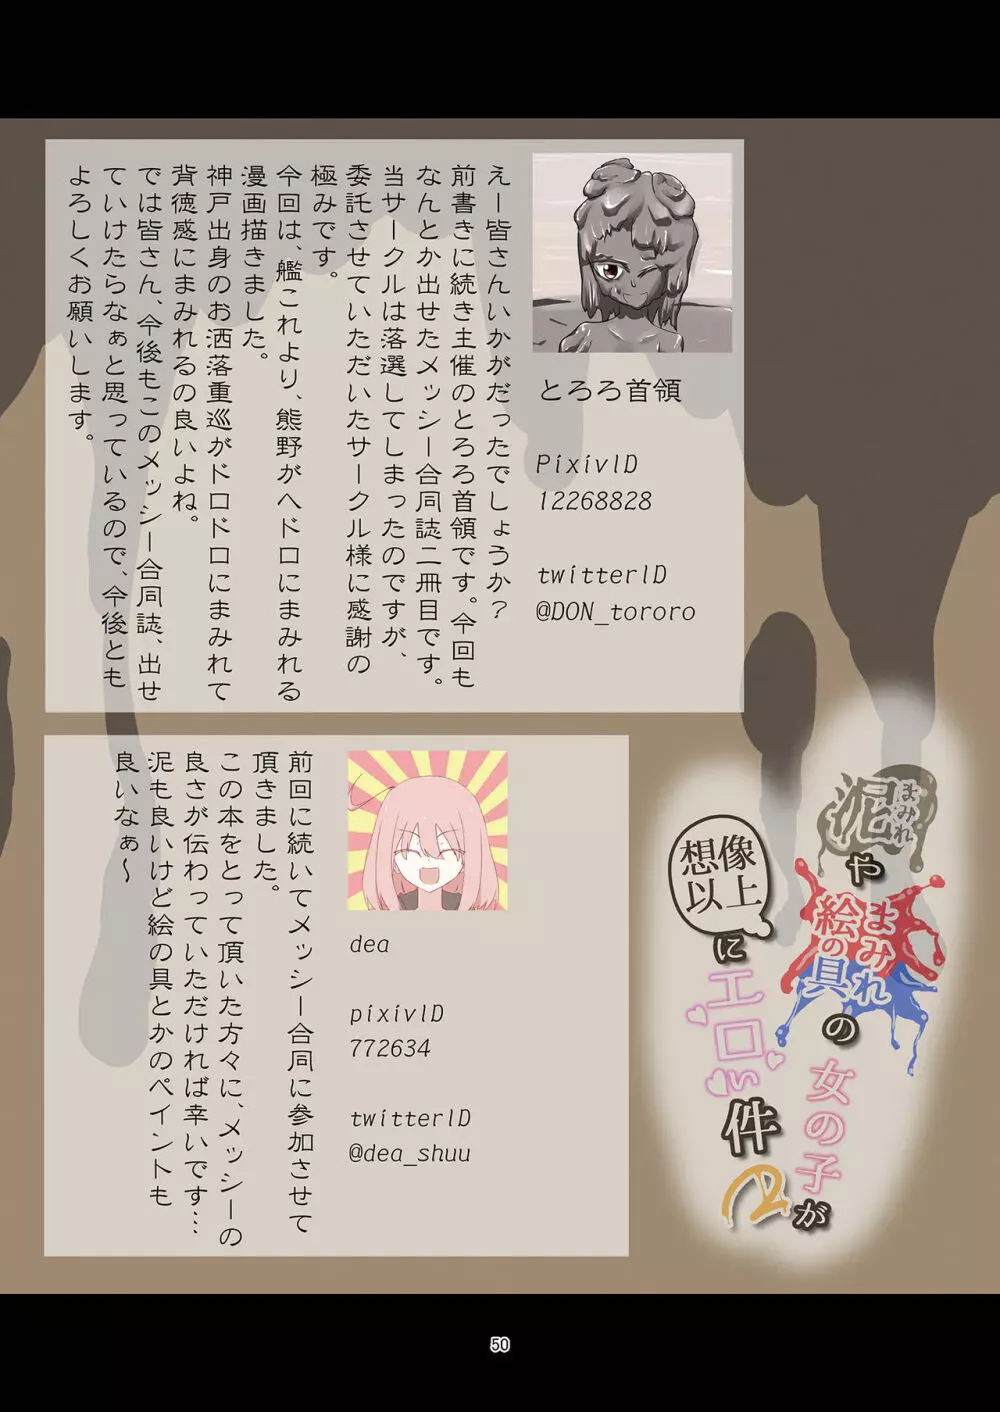 とろろ首領
PixivID
12268828
twitterID
@DON_tororo
えー皆さんいかがだったでしょうか?
前書きに続き主催のとろろ首領です。今回も
なんとか出せたメッシー合同誌二冊目です。
当サークルは落選してしまったのですが、
委託させていただいたサークル様に感謝の
極みです。
今回は、艦これより、熊野がヘドロにまみれる
漫画描きました。
神戸出身のお洒落重巡がドロドロにまみれて
背徳感にまみれるの良いよね。
では皆さん、今後もこのメッシー合同誌、出せ
ていけたらなぁと思っているので、今後とも
よろしくお願いします。
泥まみれや
絵の具まみれの
女の子が
想像以上に
エロい件
2
dea
pixivID
772634
twitterID
@dea_shuu
前回に続いてメッシー合同に参加させて
頂きました。
この本をとって頂いた方々に、メッシーの
良さが伝わっていただければ幸いです…
泥も良いけど絵の具とかのペイントも
良いなぁ～
50